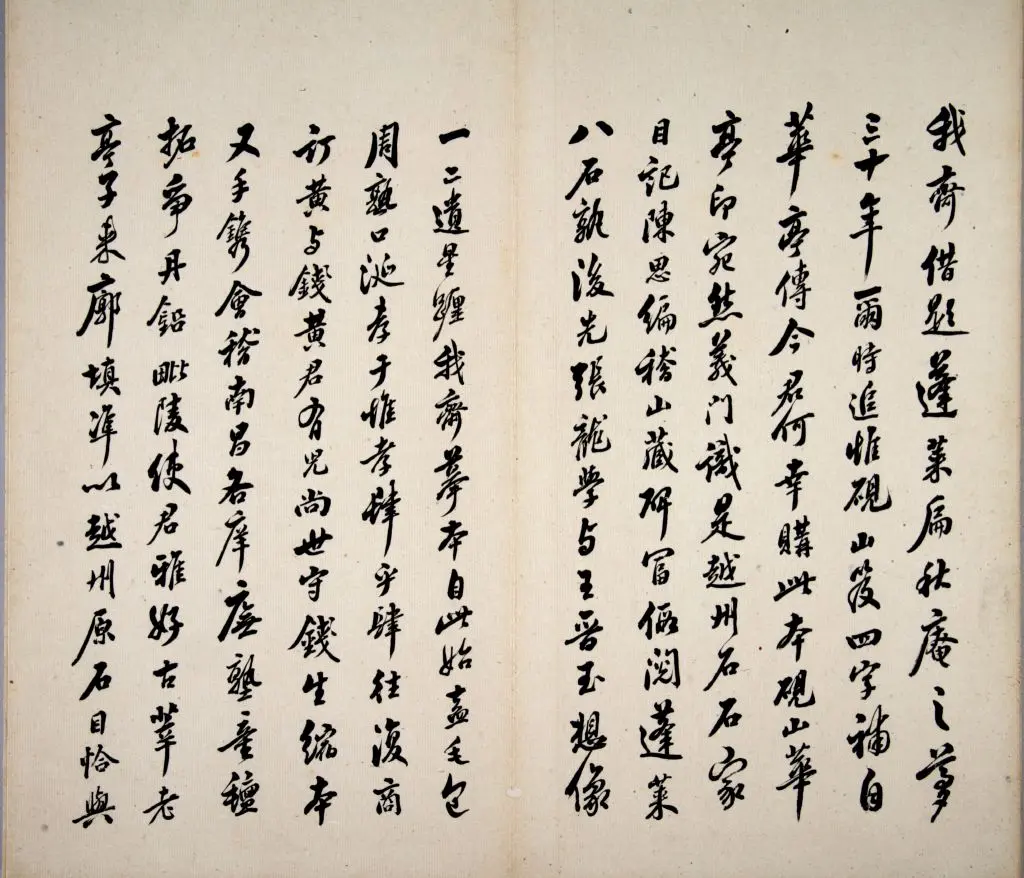 我齋借題蓬萊扁秋庵之夢
三十年爾時追惟硯山笈四字補自
華亭傳今君何幸購此本硯山華
亭印宛然義門識是越州石石家
目記陳思編稽山藏碑冨蓬萊
八石孰後先張龍學与王晉玉想像
一二遺星躔我齋摹本自此始盍毛包
周熟口涎孝于惟孝肆乎肆往復商
訂黃与錢黃君有兒尚世守錢生縮本
又手鐫會稽南昌各庠廡塾童
拓爭丹鉛毗陵使君雅好古莘老
亭子來廓填準以越州原石目恰與